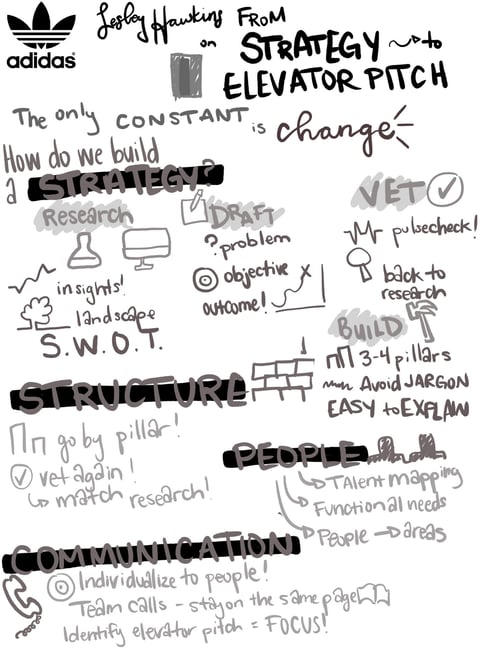 adidas
Lesley Hawkins FROM
on STRATEGY to
ELEVATOR PITCH
The only CONSTANT is change
How do we build
a STRATEGY?
Research
insights!
landscape
S.W.O.T.
DRAFT
? problem
objective
outcome!
VET
pulsecheck!
back to
research
BUILD
3-4 pillars
Avoid JARGON
EASY to EXPLAIN
STRUCTURE
go by pillar!
vet again!
match research!
PEOPLE
TAlent mapping
Functional needs
People → areas
COMMUNICATION
Individualize to people!
Team calls - stay on the same page
Identify elevator pitch = FOCUS!